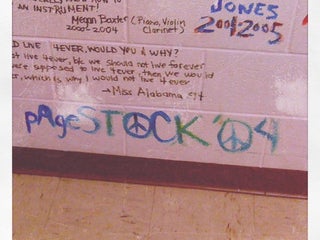 AN INSTRUMENT!
Megan Baxter (Piano, Violin
2000-2004 Clarinet)
JONES
2001-2005
D LIVE 4EVER, WOULD YOU & WHY?
not live 4ever, b/c we should not live forever
were supposed to live 4ever, then we would
er, which is why I would not live 4ever
→Miss Alabama '94
pAgeSTOCK '04